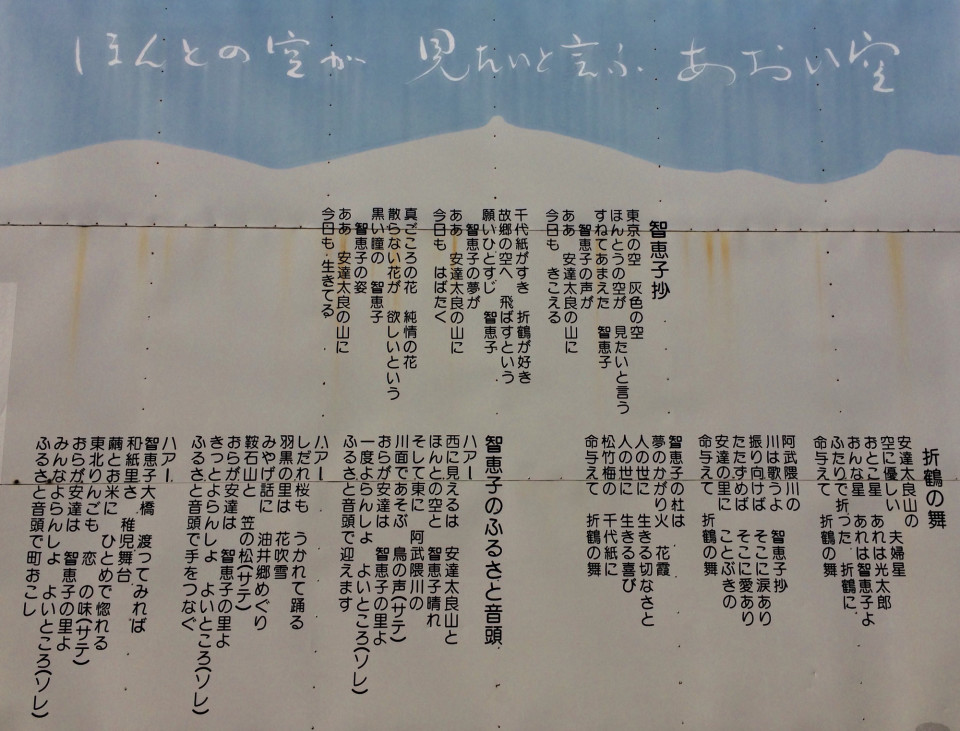 ほんとの空が　見たいと言ふ　あおい空
智恵子抄
東京の空　灰色の空
ほんとうの空が　見たいと言う
すねてあまえた　智恵子
智恵子の声が
ああ　安達太良の山に
今日も　きこえる
千代紙がすき　折鶴が好き
故郷の空へ　飛ばすという
願いひとすじ　智恵子
智恵子の夢が
ああ　安達太良の山に
今日も　はばたく
真ごころの花　純情の花
散らない花が　欲しいという
黒い瞳の　智恵子
智恵子の姿
ああ　安達太良の山に
今日も　生きてる
折鶴の舞
安達太良山の
空に優しい　夫婦星
おとこ星　あれは光太郎
おんな星　あれは智恵子よ
ふたりで折った　折鶴に
命与えて　折鶴の舞
阿武隈川の
川は歌うよ　智恵子抄
振り向けば　そこに涙あり
たたずめば　そこに愛あり
安達の里に　ことぶきの
命与えて　折鶴の舞
智恵子の杜は
夢のかがり火　花霞
人の世に　生きる切なさと
人の世に　生きる喜び
松竹梅の　千代紙に
命与えて　折鶴の舞
智恵子のふるさと音頭
ハアー
西に見えるは　安達太良山と
ほんとの空と　智恵子晴れ
そして東に　阿武隈川の
川面であそぶ　鳥の声(サテ)
おらが安達は　智恵子の里よ
一度よらんしょ　よいところ(ソレ)
ふるさと音頭で迎えます
ハアー
しだれ桜も　うかれて踊る
羽黒の里は　花吹雪
みやげ話に　油井郷めぐり
鞍石山と　笠の松(サテ)
おらが安達は　智恵子の里よ
きっとよらんしょ　よいところ(ソレ)
ふるさと音頭で手をつなぐ
ハアー
智恵子大橋　渡ってみれば
和紙里さ　稚児舞台
繭とお米に　ひとめで惚れる
東北りんごも　恋の味(サテ)
おらが安達は　智恵子の里よ
みんなよらんしょ　よいところ(ソレ)
ふるさと音頭で町おこし